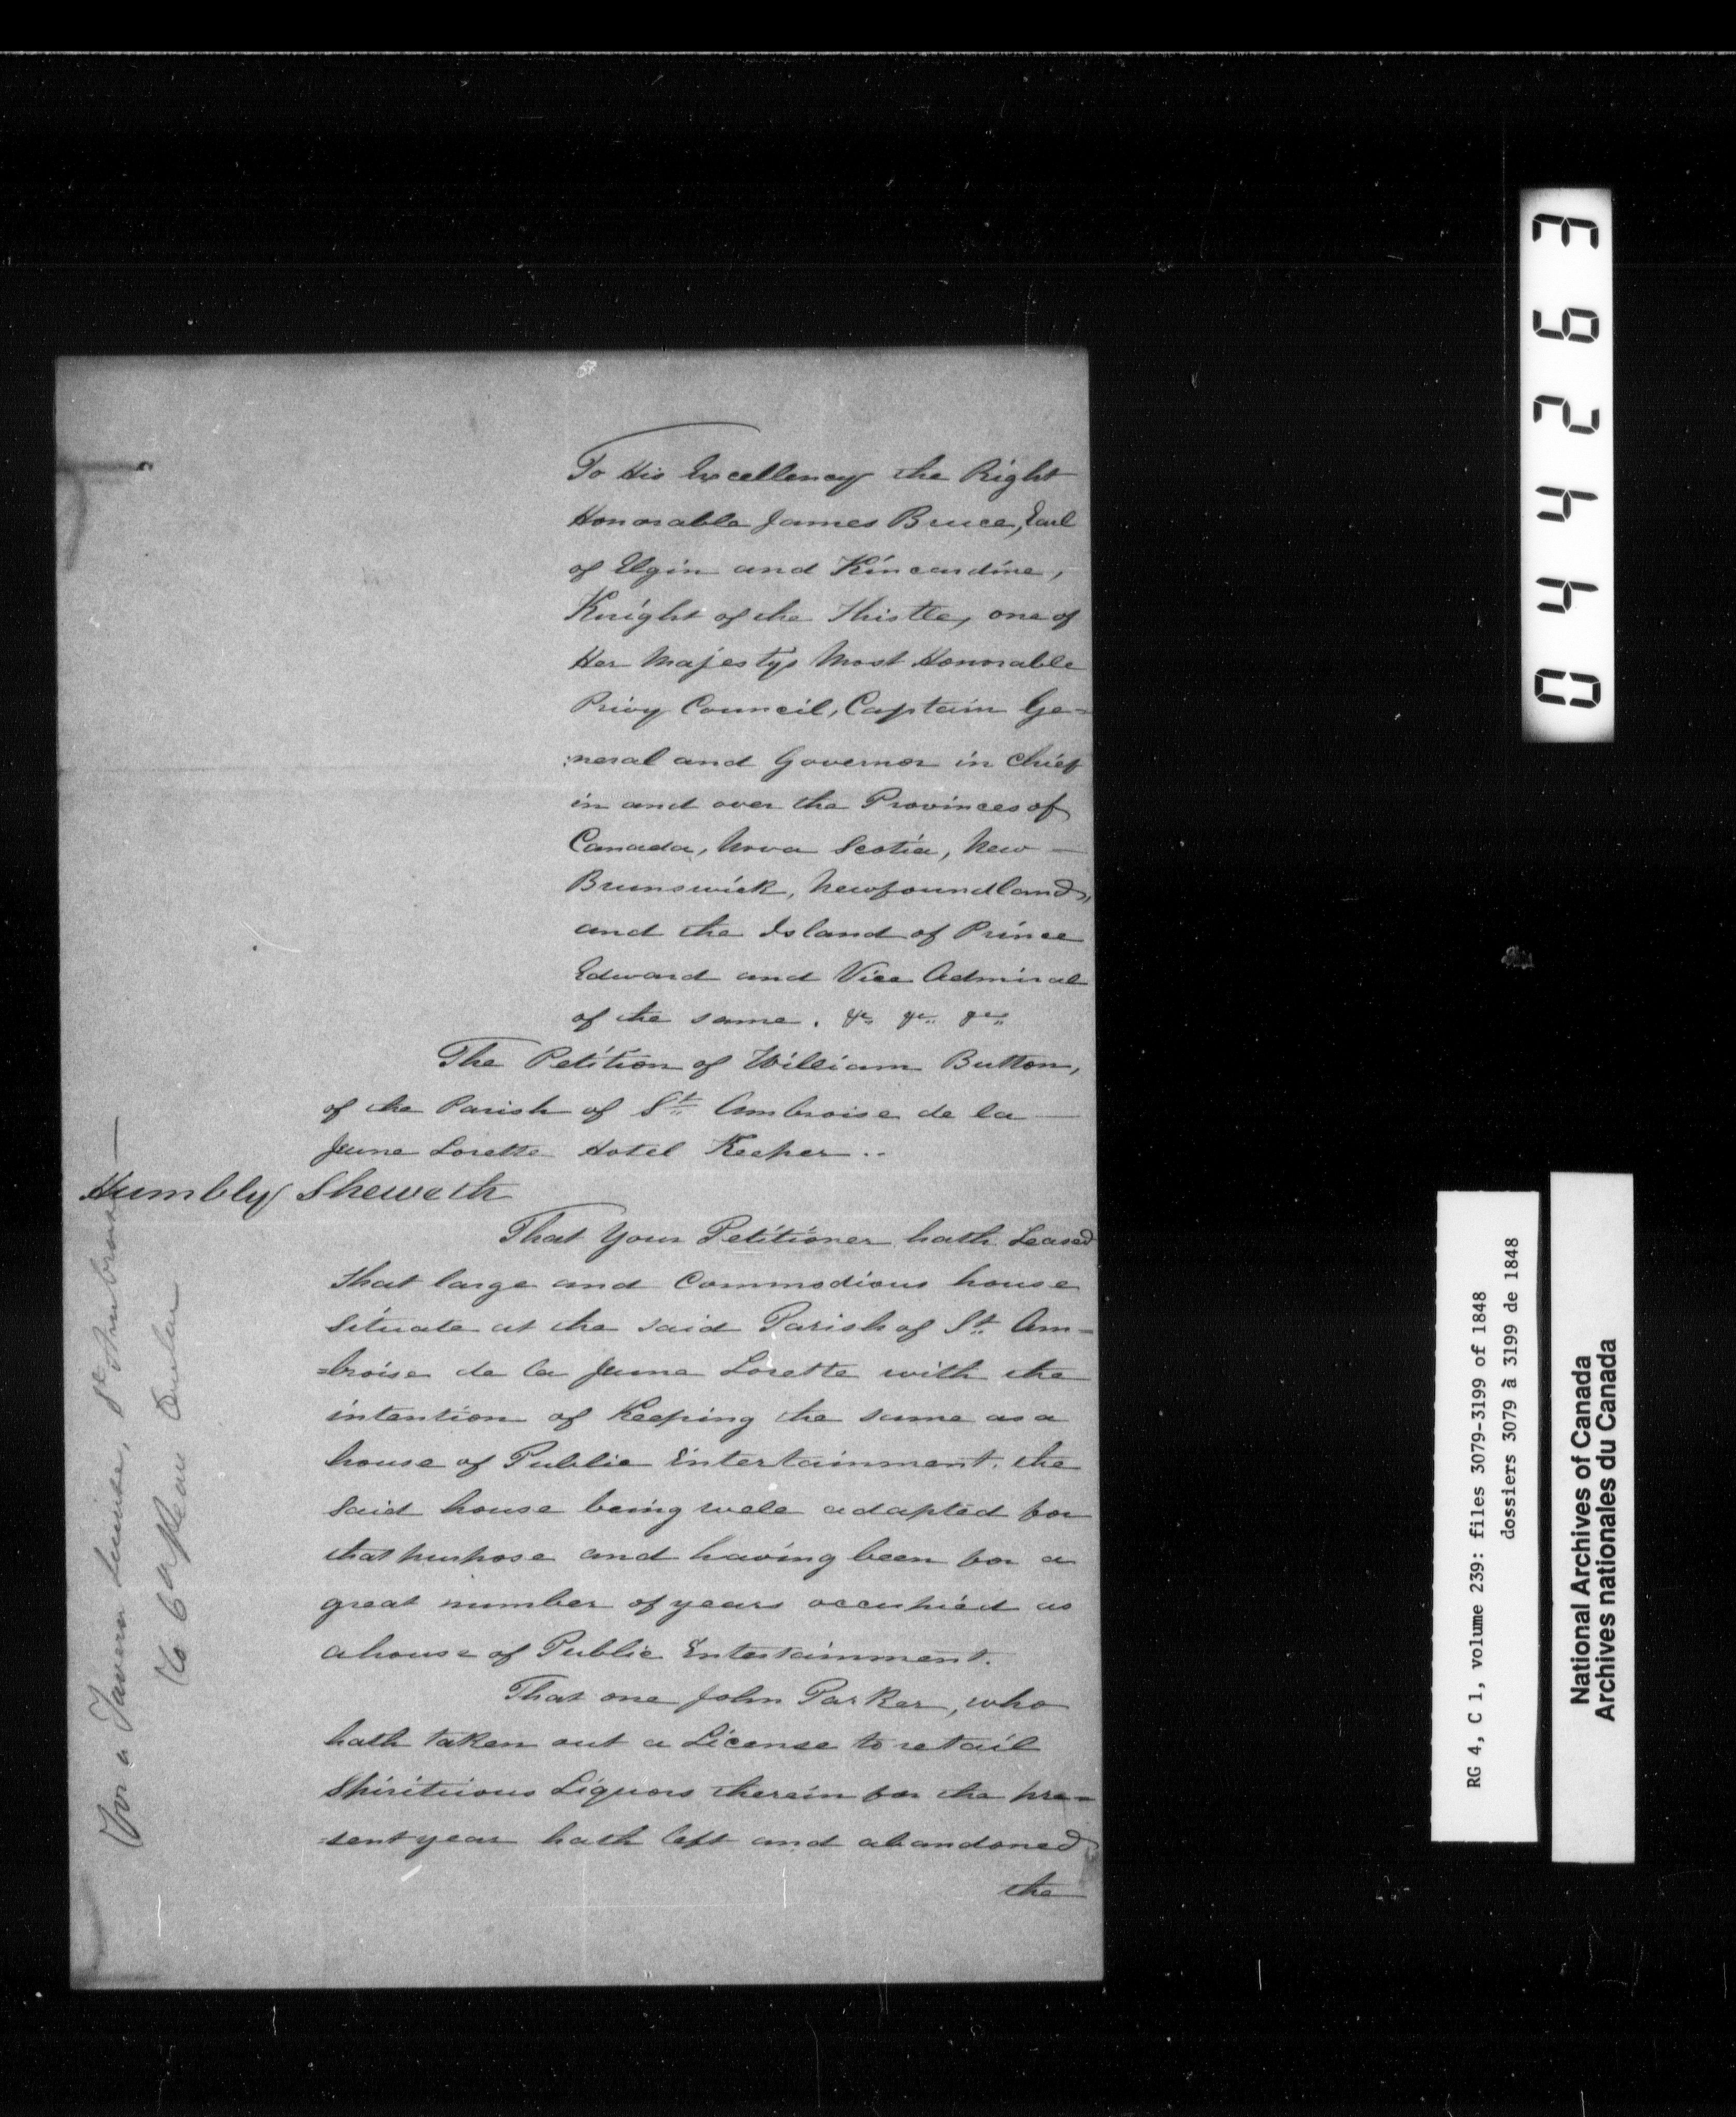 To His Excellency the Right
Honorable James Bruce, Earl
of Elgin and Kincardine,
Knight of the Thistle, one of
Her Majestys Most Honorable
Privy Council, Captain Ge=
:neral and Governor in Chief
in and over the Provinces of
Canada, Nova Scotia, New —
Brunswick, Newfoundland,
and the Island of Prince
Edward and Vice Admiral
of the same. &c &c &c
The Petition of William Button,
of the Parish of St Ambroise de la —
Jeune Lorette Hotel Keeper..
Humbly Sheweth
That Your Petitioner hath Leased
that large and Commodious house
situate at the said Parish of St Am=
=broise de la Jeune Lorette with the
intention of Keeping the same as a
house of Public Entertainment. the
said house being well adapted for
that purpose and having been for a
great number of years occupied as
a house of Public Entertainment.
That one John Parker, who
hath taken out a License to retail
Spirituous Liquors therein for the pre=
=sent year hath left and abandoned
the
For a Tavern License, St Ambroise —
0 4 4 2 6 3
RG 4, C 1, volume 239: files 3079-3199 of 1848
dossiers 3079 à 3199 de 1848
National Archives of Canada
Archives nationales du Canada